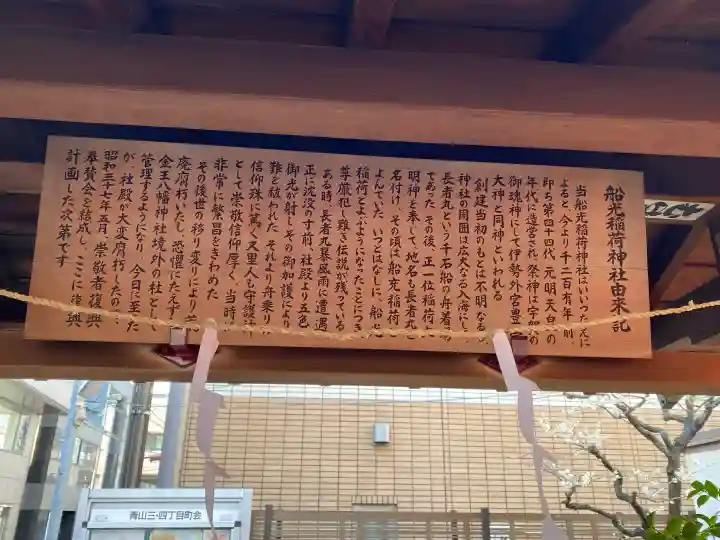 船光稲荷神社由来記
当船光稲荷神社はいいつたえに
よると、今より千二百有年前、
即ち第四十四代、元明天白の
年代に造営され、祭神は宇加の
御魂神にして伊勢外宮豊
大神と同神といわれる
創建当初のもとは不明なるも
神社の周囲は広大なる入海にし
長者丸という千石船の舟着場
であった その後、正一位稲荷大
明神を奉して、地名も長者丸と
名付け、その頃は船充稲荷と
よんでいた、いつはなしに、船光
稲荷とよぶようになったことにつき
尊厳犯し難き伝説が残っている
ある時、長者丸暴風雨に遭遇
正に沈没の寸前、社殿より五色
御光が射し、その御加護により
難を救われた それより舟乗り
信仰殊に篤く又里人も守護神
として崇敬信仰厚く、当時は
非常に繁昌をきわめた
その後世の移り変りにより
庵腐朽いたし、恐懼にたえず
金王八幡神社境外の社として
管理するようになり、今日に至った
が、社殿が大変腐朽したので、
昭和三十七年五月、崇敬者復興
奉賛会を結成し、ここに復興
計画した次第です
青山三・四丁目町会